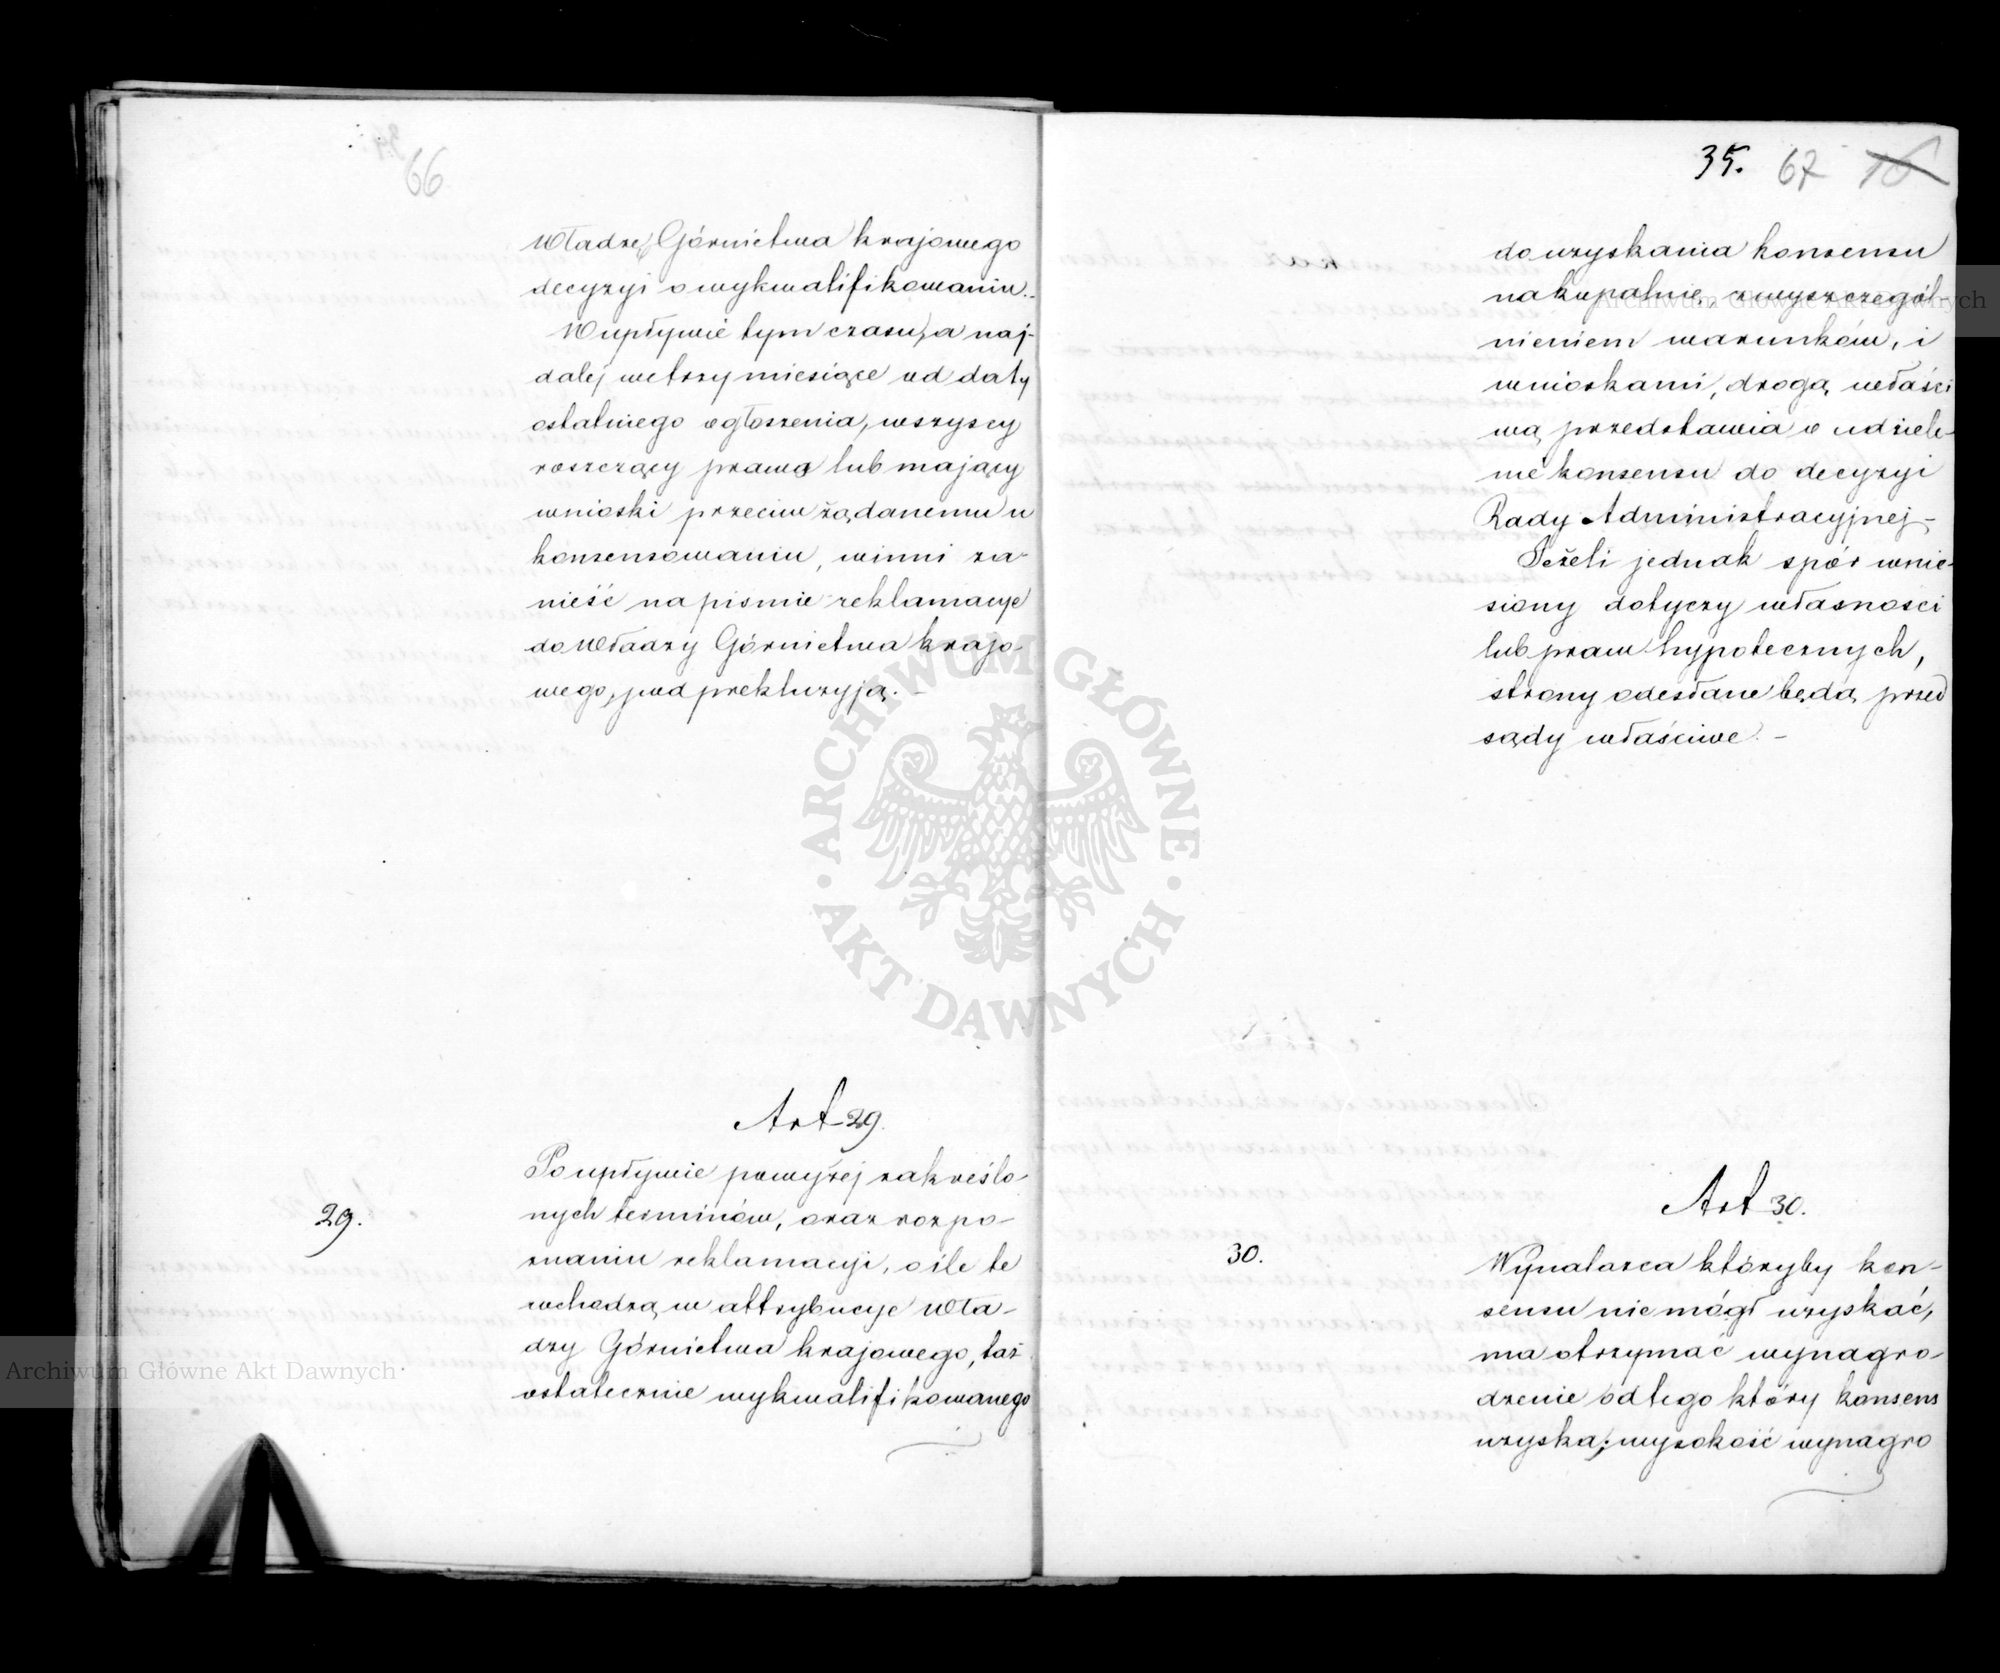 66
Władzę Górnictwa krajowego
decyzyi o wykwalifikowaniu.
W upływie tym czasu, a naj-
dalej we trzy miesiące od daty
ostatniego ogłoszenia, wszyscy
roszczący prawa lub mający
wnioski przeciw żądanemu u
konsensowaniu, winni za-
nieść na piśmie reklamacye
do Władzy Górnictwa krajo-
wego, pod prekluzyją. -
Art 29.
29.
Po upływie powyżej zakreślo-
nych terminów, oraz rozpo-
znaniu reklamacyi, o ile te
wchodzą w attrybucye Wła-
dzy Górnictwa krajowego, taż
ostatecznie wykwalifikowanego
35. 67
do uzyskania konsensu
na kopalnie, z wyszczegól-
nieniem warunków, i
wnioskami, drogą właści
wą przedstawia o udziele-
nie konsensu do decyzyi
Rady Administracyjnej -
Jeżeli jednak spór wnie-
siony dotyczy własności
lub praw hypotecznych,
strony odesłane będą przed
sądy właściwe. -
Art 30.
30.
Wynalazca któryby kon-
sensu nie mógł uzyskać,
ma otrzymać wynagro-
dzenie od tego który konsens
uzyska; wysokość wynagro
ARCHIWUM GŁÓWNE AKT DAWNYCH
Archiwum Główne Akt Dawnych
Archiwum Główne Akt Dawnych